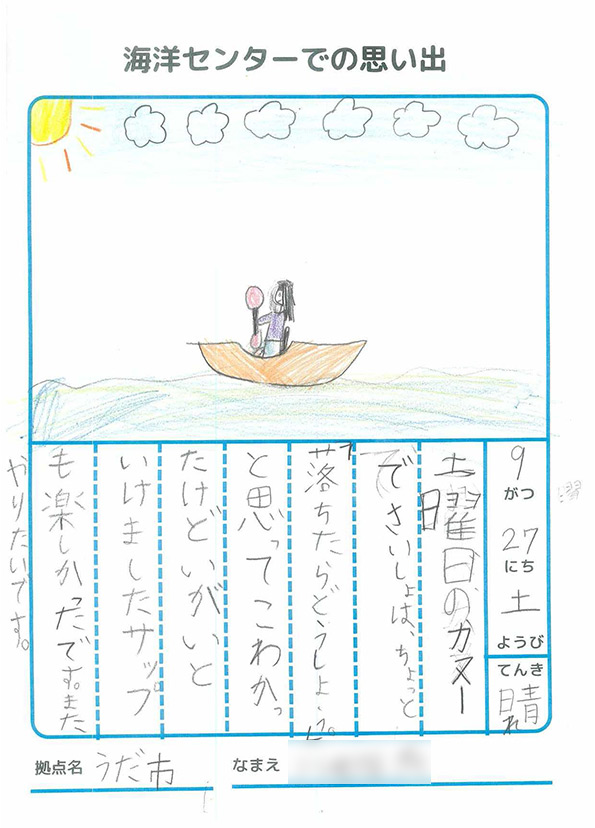 海洋センターでの思い出
9がつ27にち土ようび
てんき晴れ
土曜日のカヌー
でさいしょは、ちょっと
落ちたらどうしよ、
と思ってこわかっ
たけどいがいと
いけましたサップ
も楽しかったです。また
やりたいです。
拠点名 うだ市
なまえ